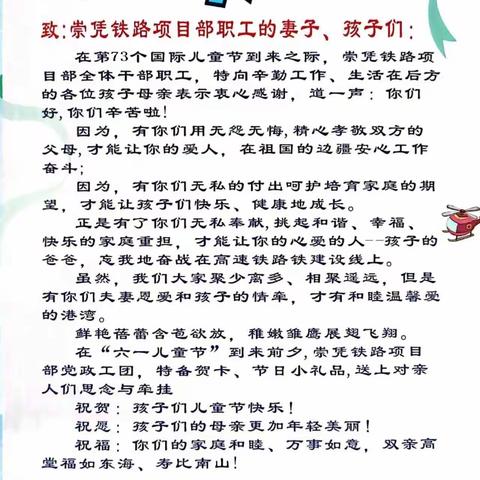 致:崇凭铁路项目部职工的妻子、孩子们:
在第73个国际儿童节到来之际，崇凭铁路项
目部全体干部职工，特向辛勤工作、生活在后方
的各位孩子母亲表示衷心感谢，道一声：你们
好,你们辛苦啦!
因为，有你们用无怨无悔,精心孝敬双方的
父母,才能让你的爱人，在祖国的边疆安心工作
奋斗;
因为，有你们无私的付出呵护培育家庭的期
望，才能让孩子们快乐、健康地成长。
正是有了你们无私奉献,挑起和谐、幸福、
快乐的家庭重担，才能让你的心爱的人--孩子的
爸爸，忘我地奋战在高速铁路铁建设线上。
虽然，我们大家聚少离多、相聚遥远，但是
有你们夫妻恩爱和孩子的情牵，才有和睦温馨爱
的港湾。
鲜艳蓓蕾含苞欲放，稚嫩雏鹰展翅飞翔。
在“六一儿童节”到来前夕,崇凭铁路项目
部党政工团，特备贺卡、节日小礼品,送上对亲
人们思念与牵挂
祝贺：孩子们儿童节快乐!
祝愿：孩子们的母亲更加年轻美丽!
祝福：你们的家庭和睦、万事如意，双亲高
堂福如东海、寿比南山!